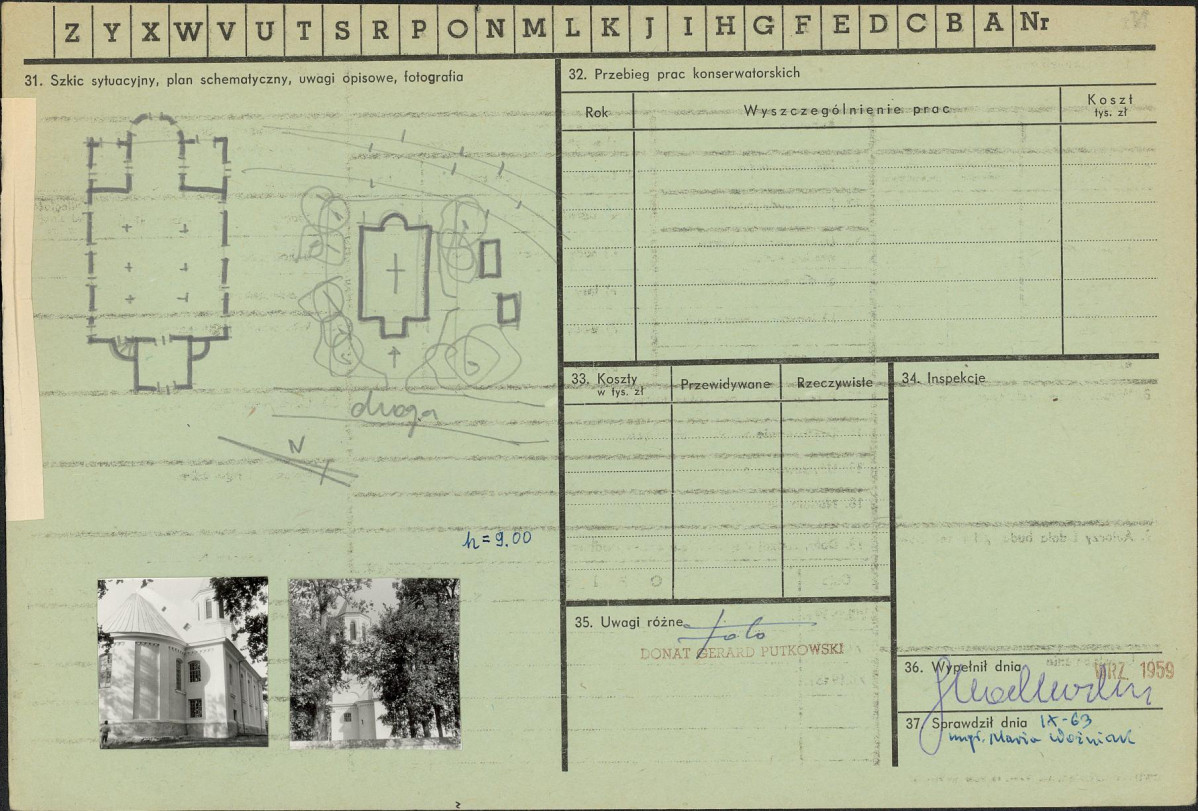 Z Y X W V U T S R P O N M L K J I H G F E D C B A Nr
31. Szkic sytuacyjny, plan schematyczny, uwagi opisowe, fotografia
droga
N
h = 9.00
32. Przebieg prac konserwatorskich
Rok Wyszczególnienie prac Koszt
tys. zł
33. Koszty
w tys. zł
Przewidywane Rzeczywiste
34. Inspekcje
35. Uwagi różne
foto
DONAT GERARD PUTKOWSKI
36. Wypełnił dnia WRZ. 1959
37. Sprawdził dnia IX-63
mgr. Maria Woźniak